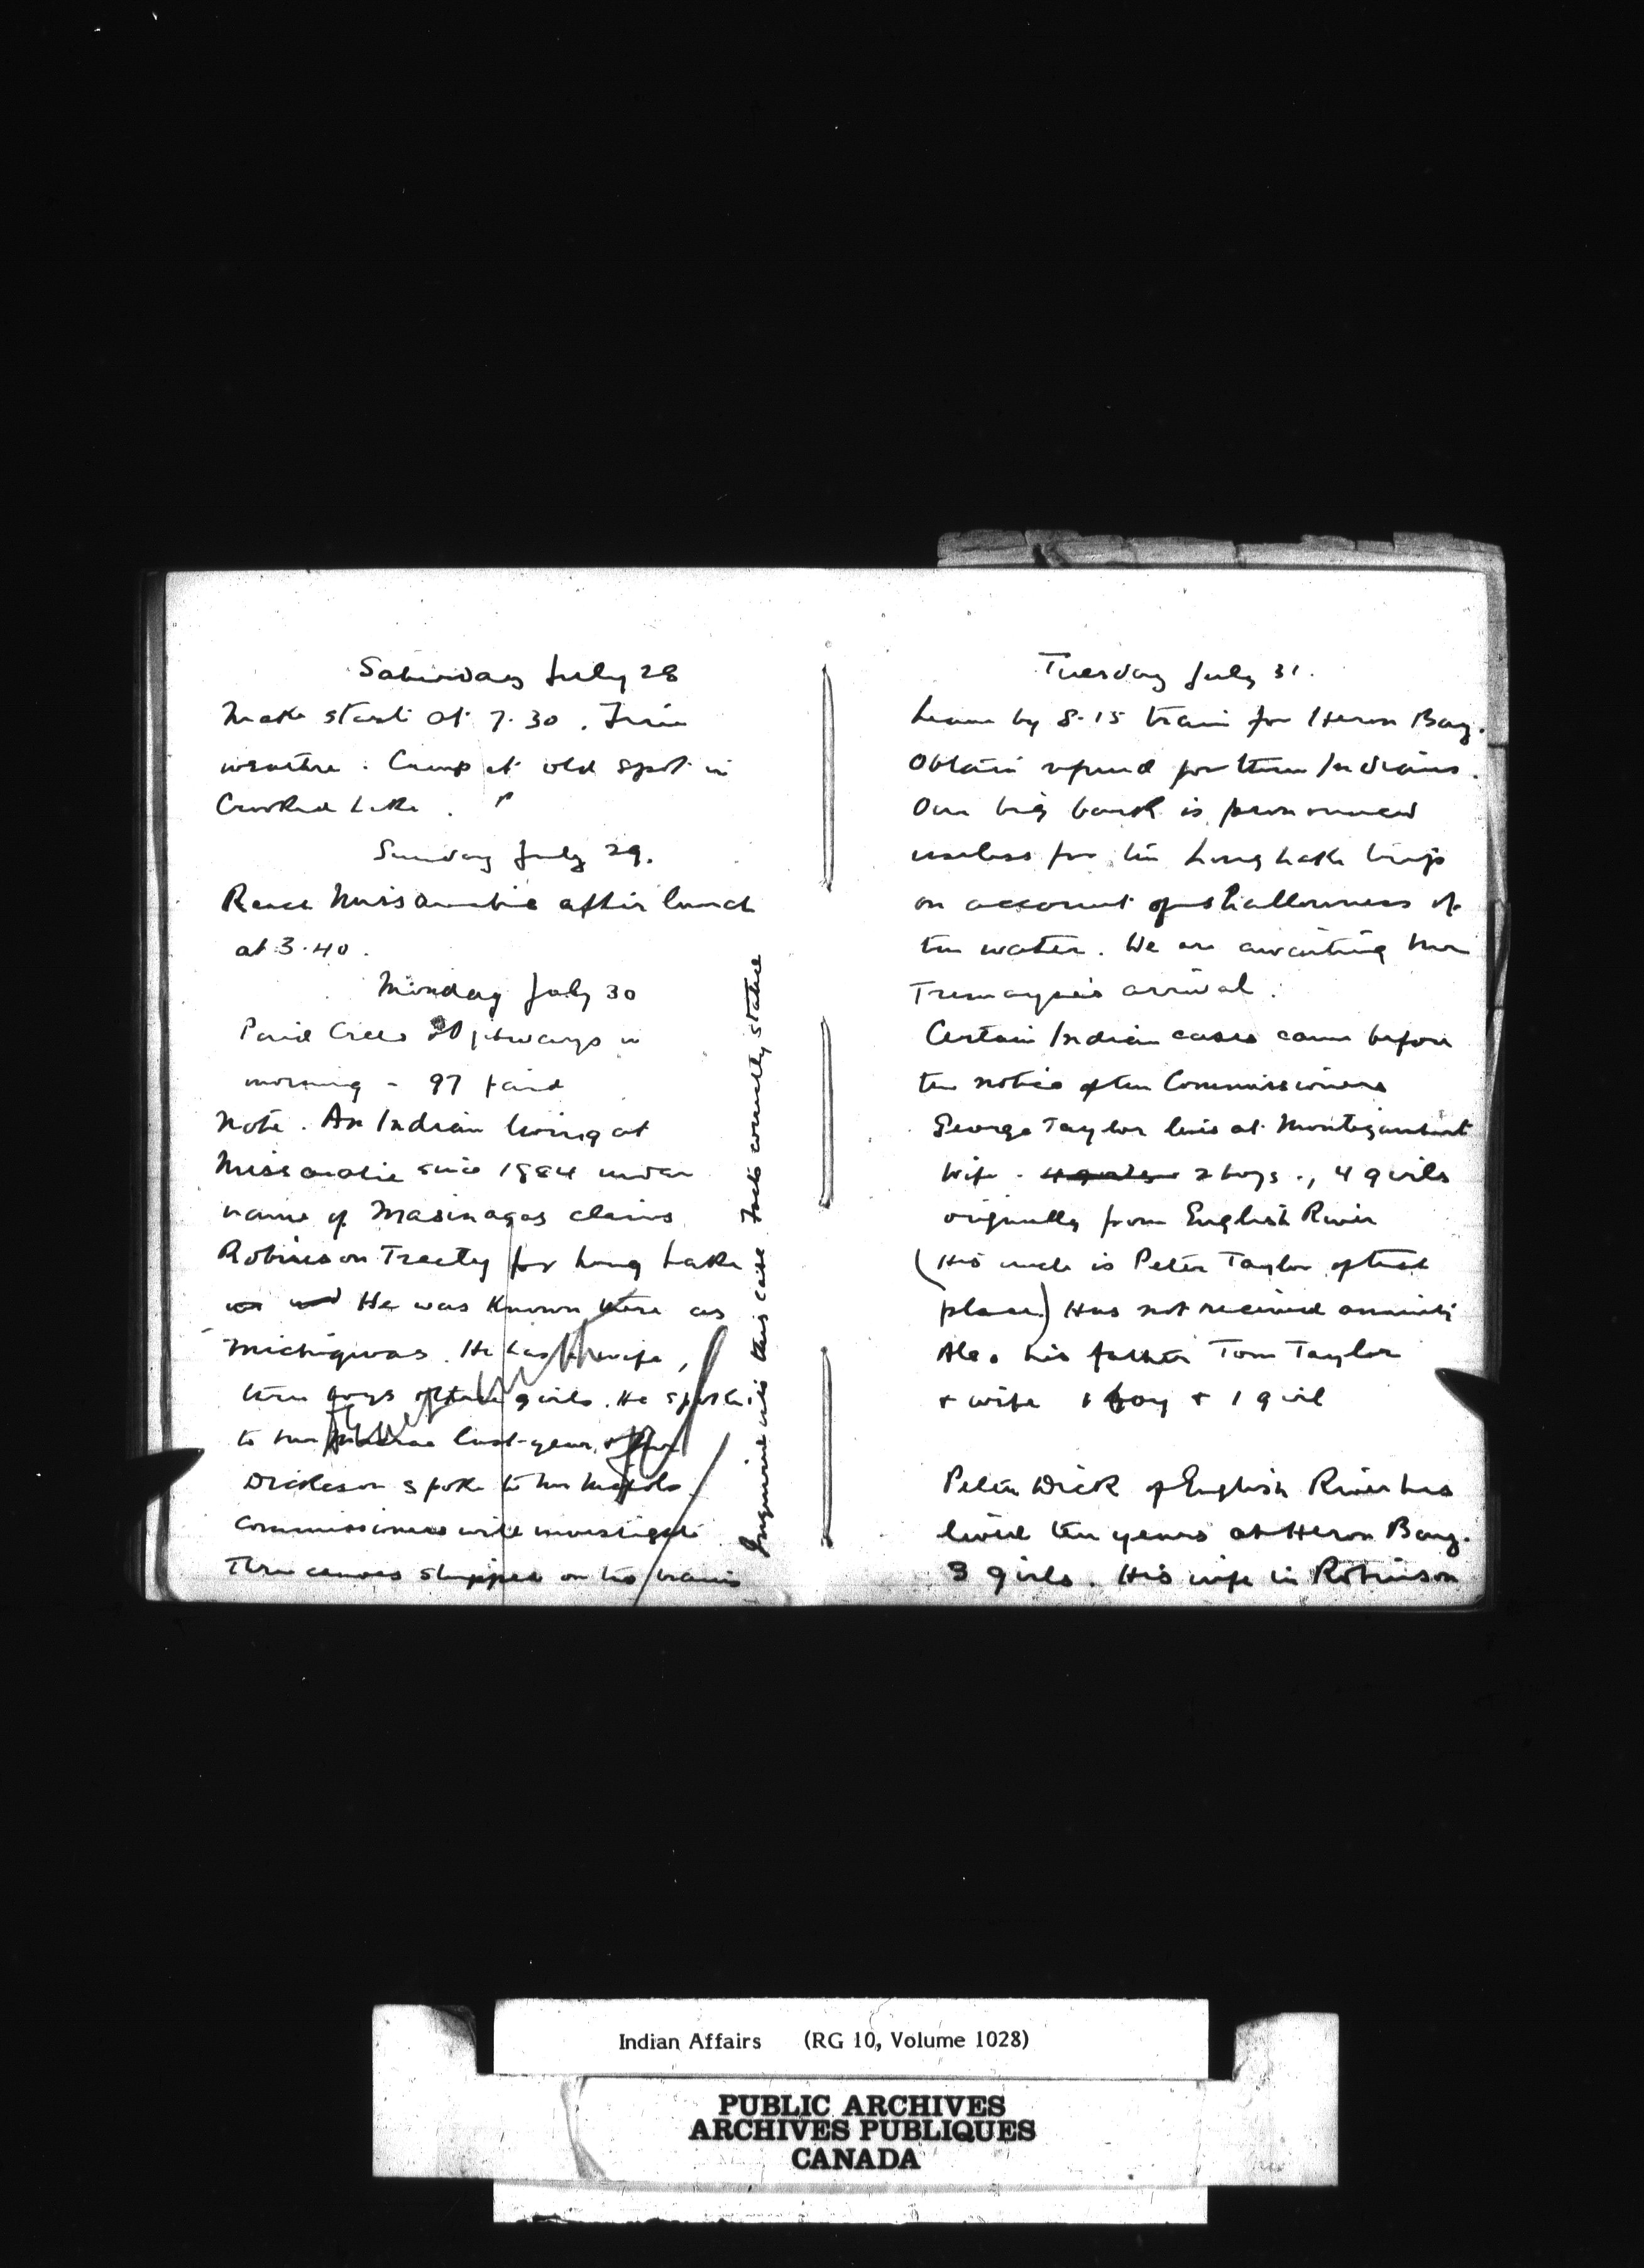 Saturday July 28
Make start at 7.30. Fine
weather. Camp at old spot in
Crooked Lake.
Sunday July 29.
Reach Missanabie after lunch
at 3.40.
Monday July 30
Paid Crees Ojibways in
morning - 97 paid
Note. An Indian living at
Missanabie since 1884 under
name of Masinagos claims
Robinson Treaty for Long Lake
He was known there as
Michigwas. He has a wife,
three boys three girls. He spoke
to last year &
Dickeson spoke to Mr
Commissioners will investigate
Three canoes shipped on two trains
Inquired into this case Facts correctly stated
Tuesday July 31.
Leave by 8.15 train for Heron Bay.
Obtain refund for three Indians.
Our big bark is pronounced
useless for the Long Lake trip
on account of shallowness of
the water. We are awaiting Mr
Tremayne's arrival.
Certain Indian cases came before
the notice of the Commissioners
George Taylor lives at Montizambert
Wife - 2 boys., 4 girls
originally from English River
(His uncle is Peter Taylor of that
place) Has not received annuity
Also his father Tom Taylor
& wife 1 boy & 1 girl
Peter Dick of English River has
lived ten years at Heron Bay.
3 girls. His wife in Robinson
Indian Affairs (RG 10, Volume 1028)
PUBLIC ARCHIVES
ARCHIVES PUBLIQUES
CANADA